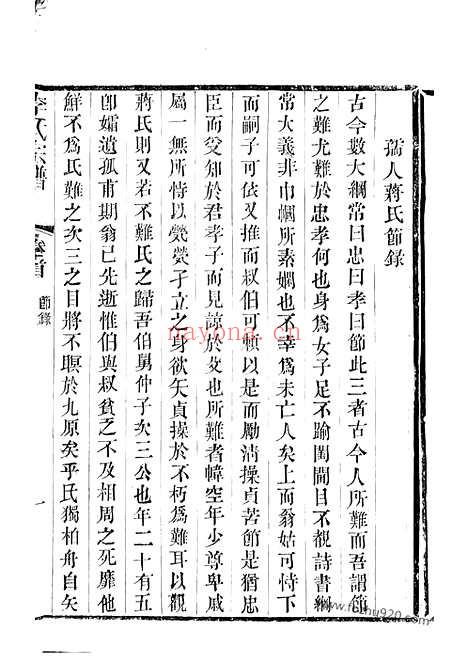 孺人蔣氏節錄
古今數大綱常曰忠曰孝曰節此三者古今人所難而吾謂節
之難尤難於忠孝何也身爲女子足不踰閨閫目不覩詩書綱
常大義非巾幗所素嫻也不幸爲未亡人矣上而翁姑可恃下
而嗣子可依又推而叔伯可憑以是而勵清操貞苦節是猶忠
臣而受知於君孝子而見諒於父也所難者幃空年少尊卑戚
屬一無所恃以煢煢孑立之身欲矢貞操於不朽爲難耳以觀
蔣氏則又若不難氏之歸吾伯舅仲子次三公也年二十有五
卽孀遺孤甫期翁已先逝惟伯與叔貧乏不及相周之死靡他
鮮不爲氏難之次三之目將不瞑於九原矣乎氏獨柏舟自矢
李氏宗譜
卷首
節錄
一
nayona.cn